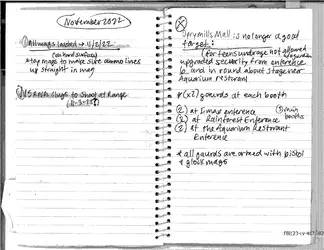 November 2022
① All mags loaded → 11/2/22
(on hard surface)
* tap mags to make sure ammo lines
up straight in mag
Slugs to Shoot at Range
Opry mills Mall is no longer a good
target:
(for teens under age not allowed
upgraded security from
6 and in round about stage near
Aquarium resturant
* (x2) gaurds at each booth
② at Imax enference
② at Rainforest Enference
② at the Aquarium Resturant
Enference
③ main
booths
* all gaurds are armed with pistol
+ glock mags